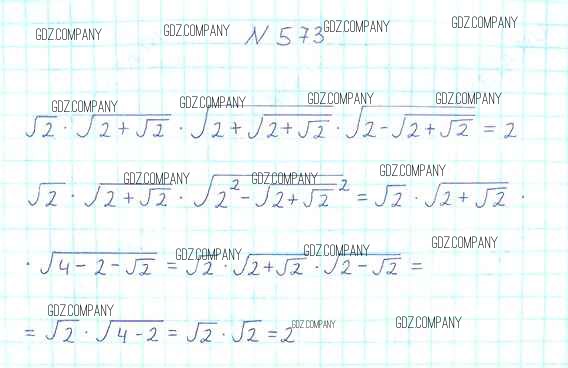 GDZ.COMPANY GDZ.COMPANY GDZ.COMPANY GDZ.COMPANY
N 573
GDZ.COMPANY GDZ.COMPANY GDZ.COMPANY GDZ.COMPANY
√2 · √(2 + √2) · √(2 + √(2 + √2)) · √(2 - √(2 + √2)) = 2
GDZ.COMPANY GDZ.COMPANY GDZ.COMPANY
√2 · √(2 + √2) · √(2² - √(2 + √2)²) = √2 · √(2 + √2) ·
GDZ.COMPANY GDZ.COMPANY GDZ.COMPANY
· √(4 - 2 - √2) = √2 · √(2 + √2) · √(2 - √2) =
GDZ.COMPANY GDZ.COMPANY GDZ.COMPANY
= √2 · √(4 - 2) = √2 · √2 = 2